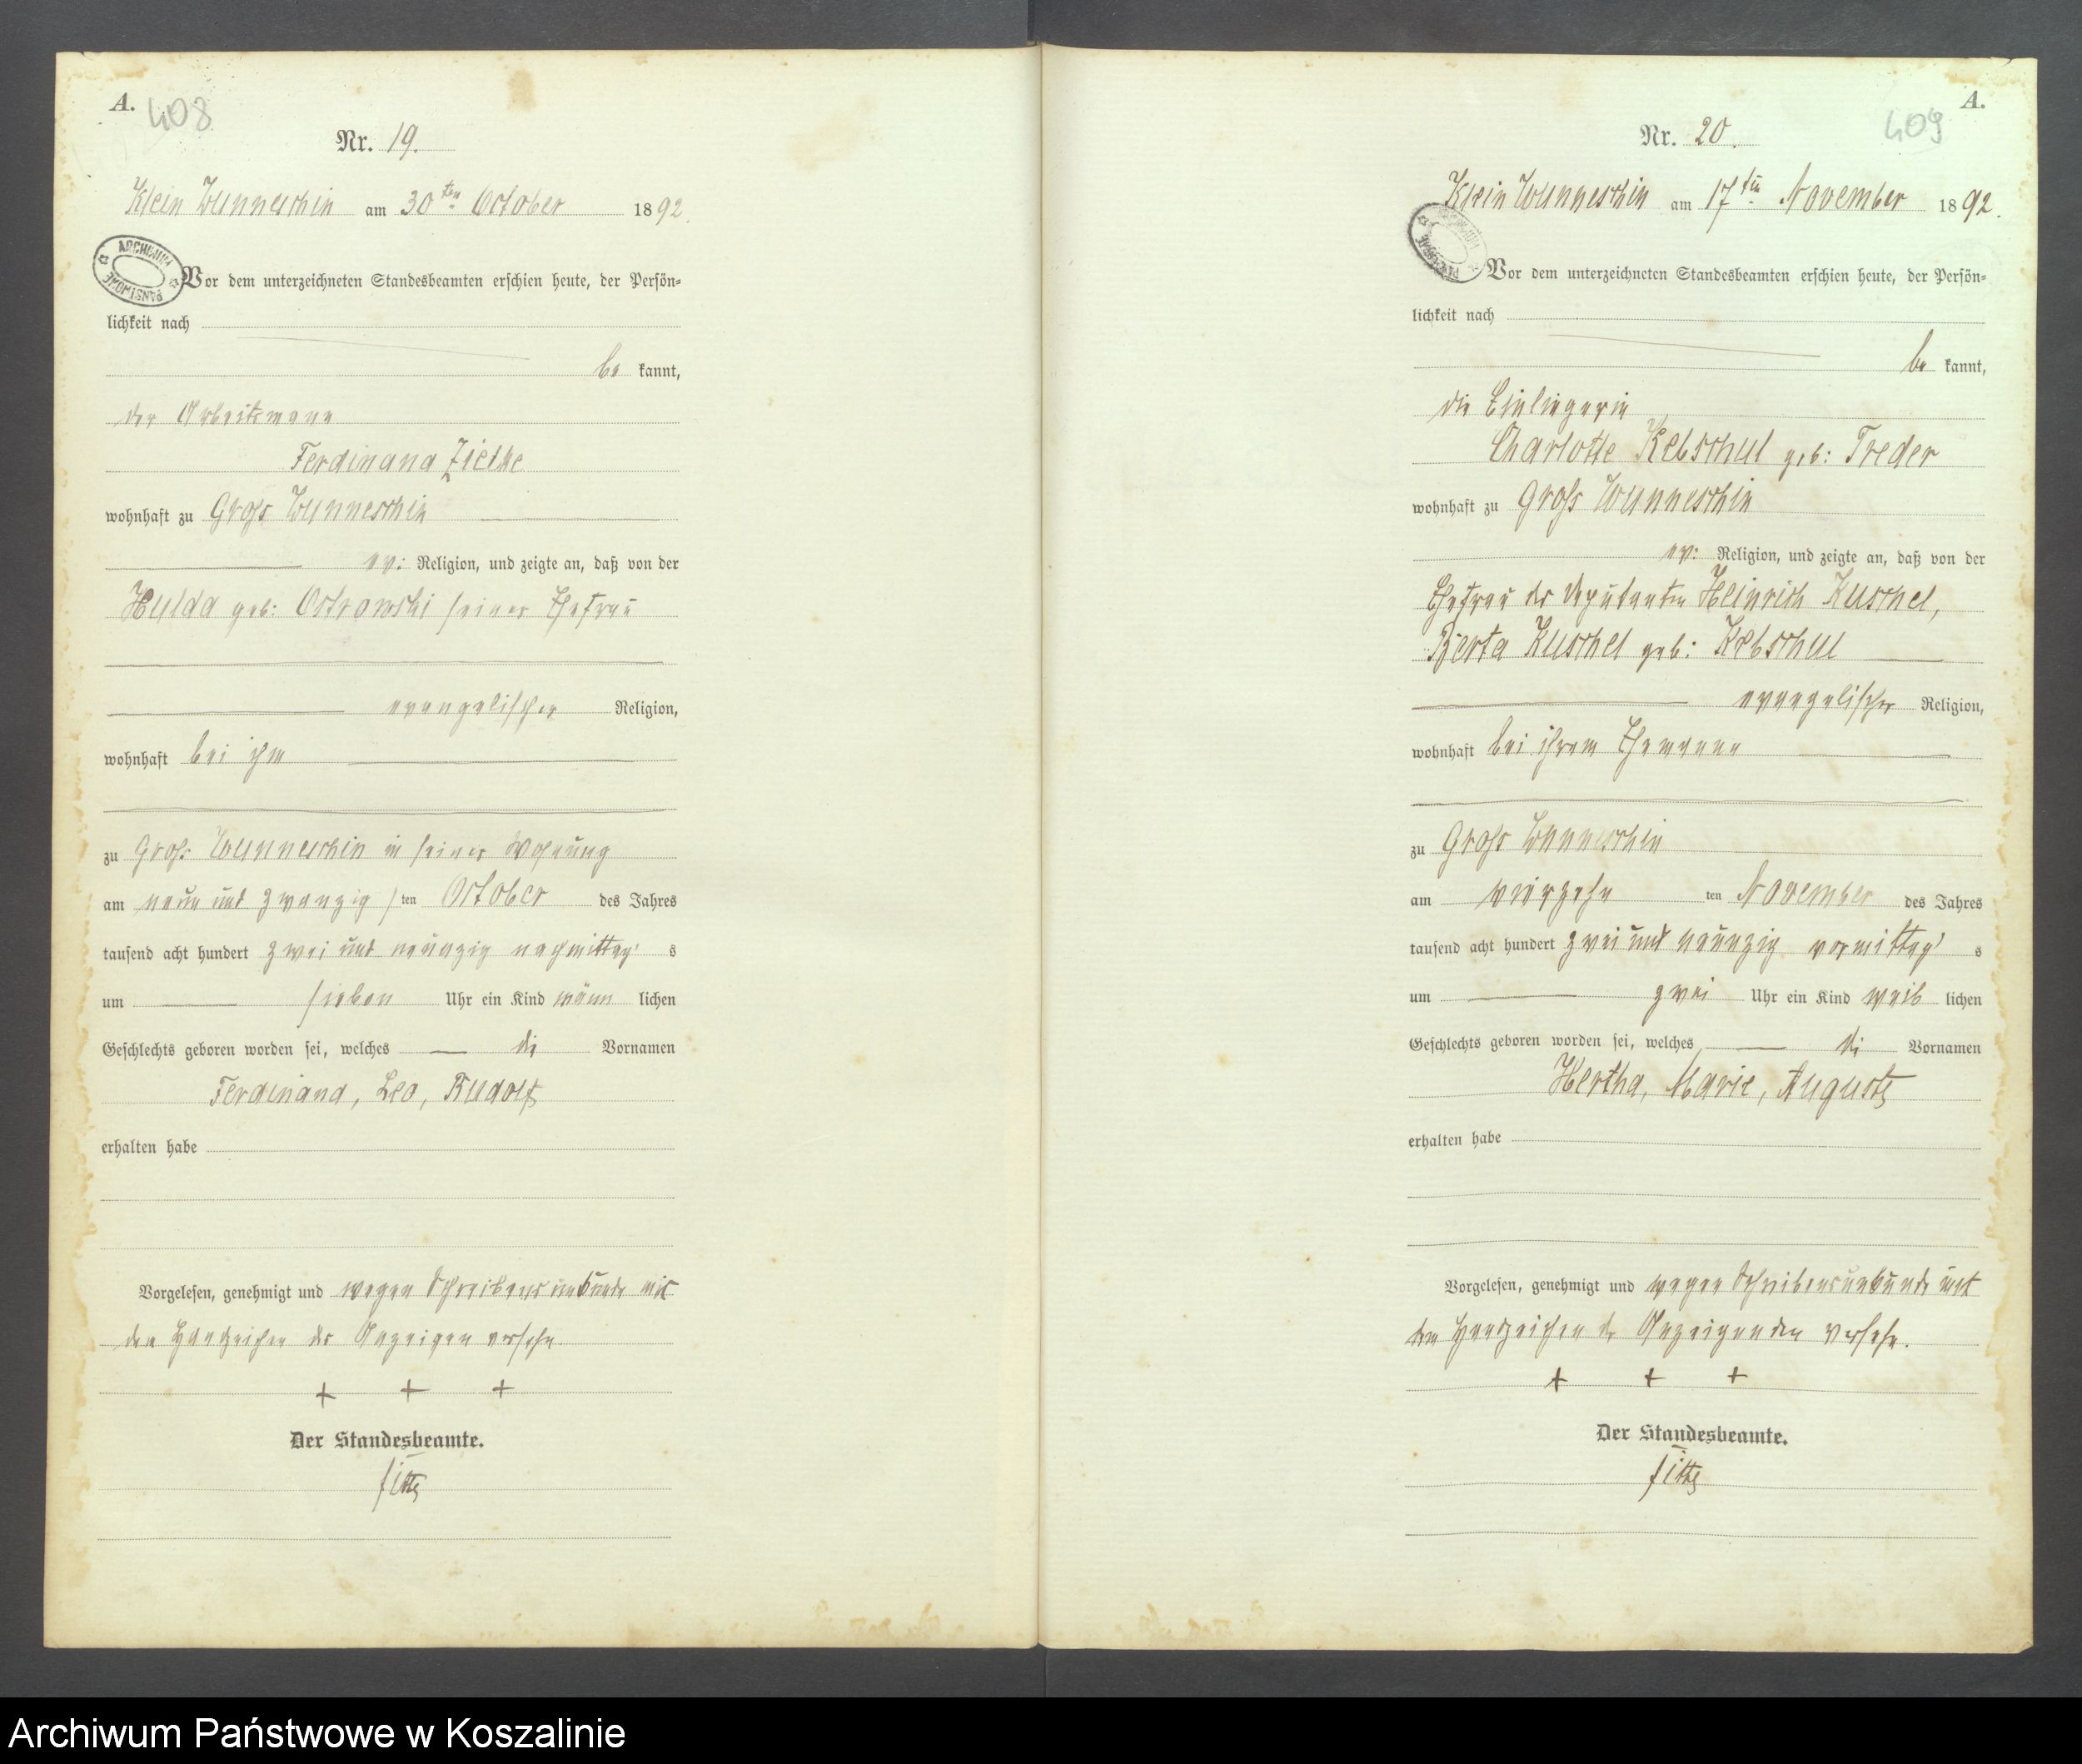 A.
408
Nr. 19.
Klein Wunneschin am 30ten October 1892.
ARCHIWUM PAŃSTWOWE
Vor dem unterzeichneten Standesbeamten erschien heute, der Persön=
lichkeit nach
be kannt,
der Arbeitsmann
Ferdinand Zielke
wohnhaft zu Groß Wunneschin
ev: Religion, und zeigte an, daß von der
Hulda geb: Ostrowski seiner Ehefrau
evangelischer Religion,
wohnhaft bei ihm
zu Groß Wunneschin in seiner Wohnung
am neun und zwanzigsten October des Jahres
tausend acht hundert zwei und neunzig nachmittags
um sieben Uhr ein Kind männ lichen
Geschlechts geboren worden sei, welches die Vornamen
Ferdinand, Leo, Rudolf
erhalten habe
Vorgelesen, genehmigt und wegen Schreibens unkunde mit
den Handzeichen des Anzeigen versehn
+ + +
Der Standesbeamte.
A.
409
Nr. 20.
Klein Wunneschin am 17ten November 1892.
Vor dem unterzeichneten Standesbeamten erschien heute, der Persön=
lichkeit nach
be kannt,
die Einliegerin
Charlotte Kebschul geb: Treder
wohnhaft zu Groß Wunneschin
ev: Religion, und zeigte an, daß von der
Ehefrau des Deputanten Heinrich Kuschel,
Berta Kuschel geb: Kebschul
evangelischer Religion,
wohnhaft bei ihrem Ehemanne
zu Groß Wunneschin
am vierzehn ten November des Jahres
tausend acht hundert zwei und neunzig vormittags
um zwei Uhr ein Kind weib lichen
Geschlechts geboren worden sei, welches die Vornamen
Hertha, Marie, Auguste
erhalten habe
Vorgelesen, genehmigt und wegen Schreibensunkunde mit
den Handzeichen der Anzeigenden versehn.
+ + +
Der Standesbeamte.
Archiwum Państwowe w Koszalinie